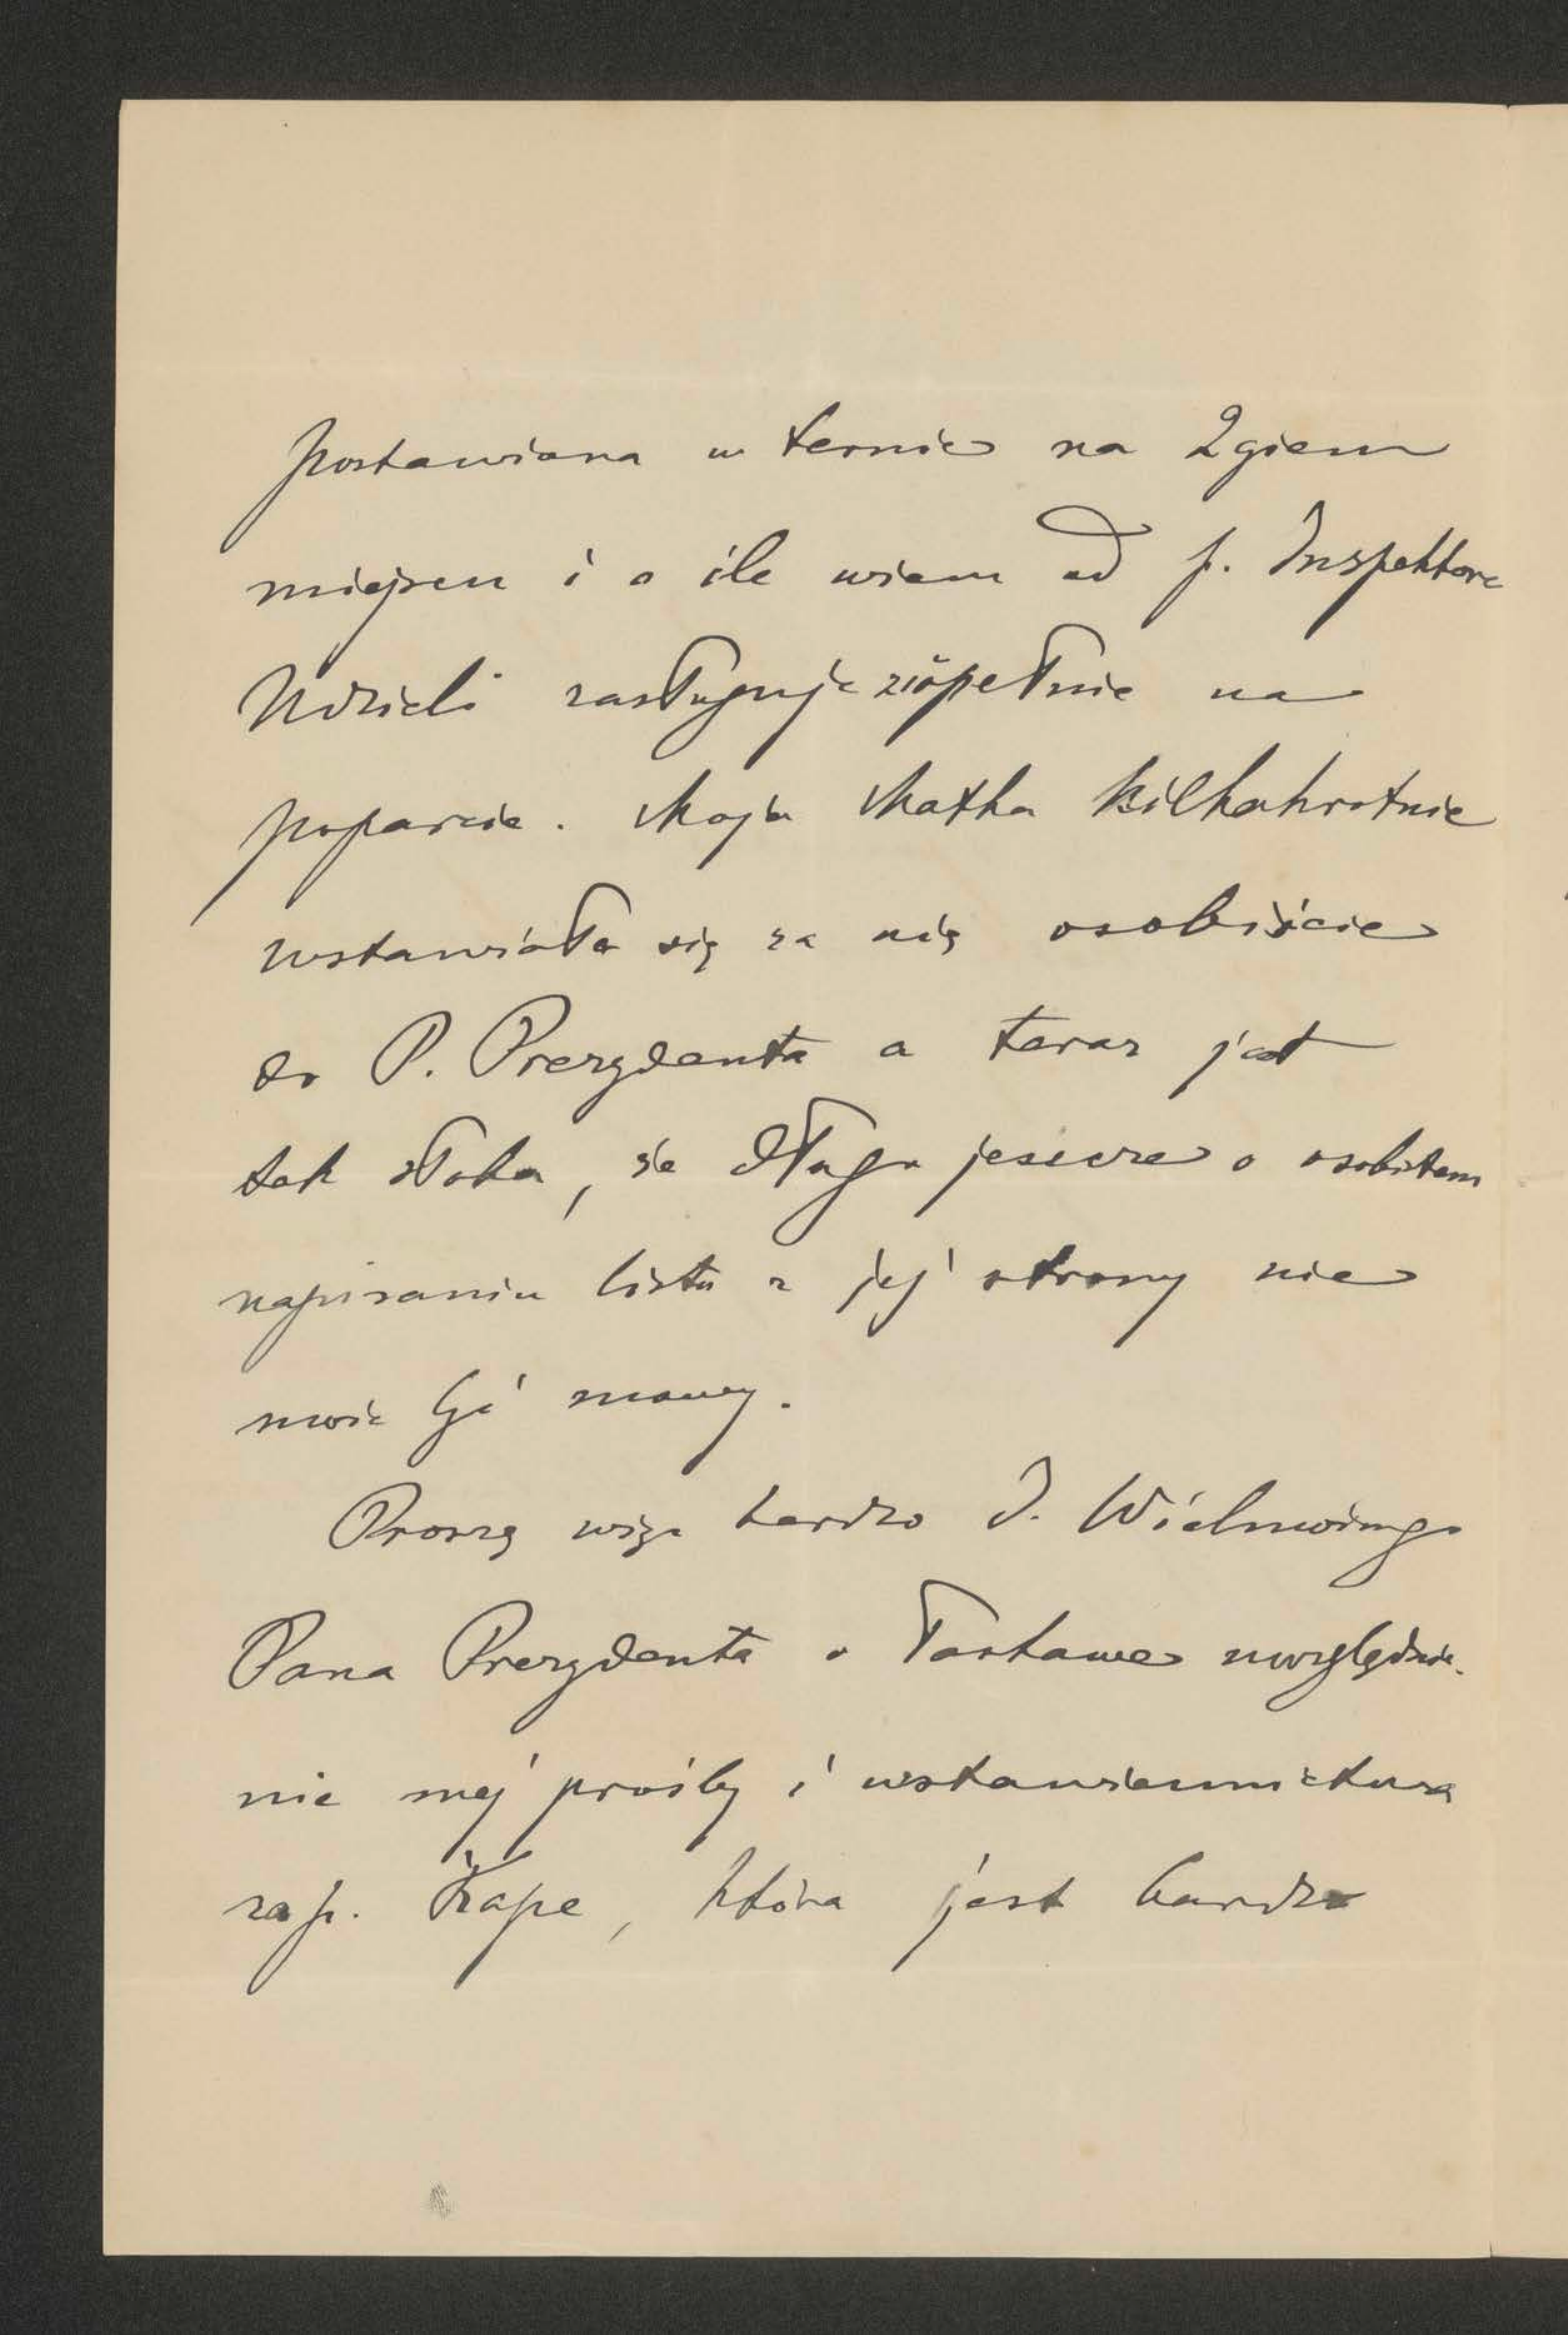 postawiona w ternie na 2giem
miejscu i o ile wiem od p. Inspektora
Udzieli zasługuje zupełnie na
poparcie. Moja Matka kilkakrotnie
wstawiała się za nią osobiście
do P. Prezydenta a teraz jest
tak słaba, że długo jeszcze o osobistem
napisaniu listu z jej strony nie
może być mowy.
Proszę więc bardzo J. Wielmożnego
Pana Prezydenta o łaskawe uwzględnie-
nie mej prośby i wstawiennictwa
za p. , która jest bardzo